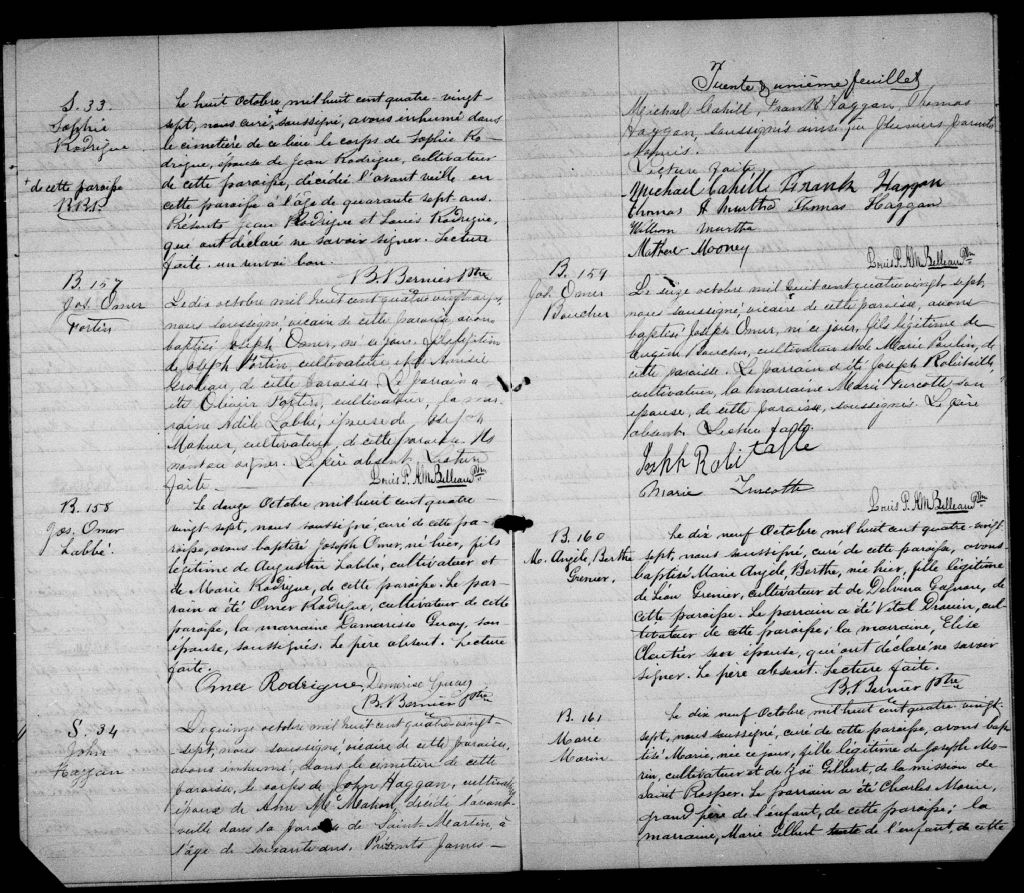 S. 33.
Sophie
Rodrigue
+ de cette paroisse
B.B.P.
Le huit Octobre, mil huit cent quatre-vingt-
sept, nous curé, soussigné, avons inhumé dans
le cimetière de ce lieu le corps de Sophie Ro-
drigue, épouse de Jean Rodrigue, cultivateur
de cette paroisse, décédée l'avant veille en
cette paroisse à l'âge de quarante sept ans.
Présents Jean Rodrigue et Louis Rodrigue,
qui ont déclaré ne savoir signer. Lecture
faite. un renvoi bon.
B. Bernier Ptre
B. 157
Jos. Omer
Fortin
Le dix octobre mil huit cent quatre vingt sept,
nous soussigné vicaire de cette paroisse avons
baptisé Joseph Omer, né ce jour, fils légitime
de Joseph Fortin cultivateur et de
de cette paroisse. Le parrain a
été Olivier Fortin, cultivateur, la mar-
raine Adèle Labbé, épouse de
Maheux, cultivateur, de cette paroisse. Ils
n'ont su signer. Le père absent. Lecture
faite.
Louis P. A.M. Belleau Ptre
B. 158
Jos. Omer
Labbé.
Le douze Octobre mil huit cent quatre-
vingt sept, nous soussigné, curé de cette pa-
roisse, avons baptisé Joseph Omer, né hier, fils
légitime de Augustin Labbé, cultivateur et
de Marie Rodrigue, de cette paroisse. Le par-
rain a été Omer Rodrigue, cultivateur de cette
paroisse, la marraine Damerisse Guay, son
épouse, soussignés. Le père absent. Lecture
faite.
Omer Rodrigue, Demerise Guay
B. Bernier Ptre
S. 34
John
Haggan
Le quinze octobre mil huit cent quatre-vingt-
sept, nous soussigné, vicaire de cette paroisse,
avons inhumé, dans le cimetière de cette
paroisse, le corps de John Haggan, cultivateur
époux de Ann McMahon, décédé l'avant-
veille dans la paroisse de Saint-Martin, à
l'âge de soixante ans. Présents James
Trente & unième feuillet
Michael Cahill Frank Haggan, Thomas
Haggan soussignés ainsi que plusieurs parents
& amis.
Lecture faite.
Michael Cahill Franck Haggan
Thomas A Murtha Thomas Haggan
William Murtha
Mathew Mooney
Louis P. A.M. Belleau Ptre
B. 159
Jos. Omer
Boucher
Le seize octobre mil huit cent quatre vingt sept,
nous soussigné, vicaire de cette paroisse, avons
baptisé Joseph Omer, né ce jour, fils légitime de
Eugène Boucher, cultivateur et de Marie Poulin, de
cette paroisse. Le parrain a été Joseph Robitaille
cultivateur, la marraine Marie Turcotte son
épouse, de cette paroisse, soussignés. Le père
absent. Lecture faite.
Joseph Robitaille
Marie Turcotte
Louis P. A.M. Belleau Ptre
B. 160
M. Angèle, Berthe
Grenier.
Le dix neuf Octobre mil huit cent quatre-vingt
sept, nous soussigné, curé de cette paroisse, avons
baptisé Marie Angèle Berthe, née hier, fille légitime
de Léon Grenier, cultivateur et de Delvina Gagnon, de
cette paroisse. Le parrain a été Vital Drouin, cul-
tivateur de cette paroisse; la marraine, Elise
Cloutier son épouse, qui ont déclaré ne savoir
signer. Le père absent. Lecture faite.
B. Bernier Ptre
B. 161
Marie
Morin
Le dix neuf Octobre mil huit cent quatre-vingt-
sept, nous soussigné, curé de cette paroisse, avons bap-
tisé Marie, née ce jour, fille légitime de Joseph Mo-
rin, cultivateur et de Zoë Gilbert, de la mission de
Saint Prosper. Le parrain a été Charles Morin,
grand père de l'enfant, de cette paroisse; la
marraine, Marie Gilbert tante de l'enfant, de cette